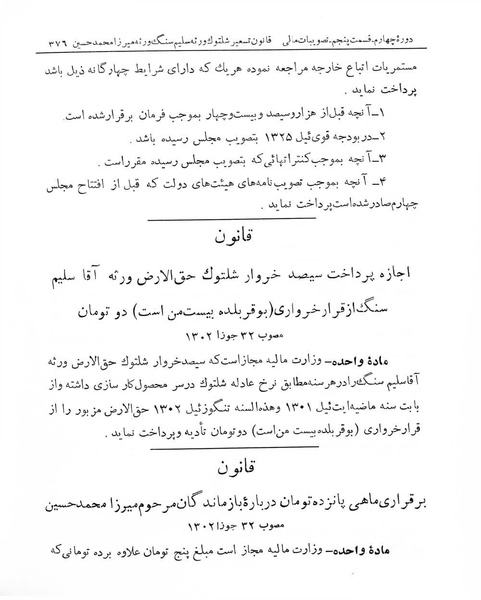 دورهٔ چهارم. قسمت پنجم. تصویبات مالی    قانون تسعیر شلتوك ورثه سلیم سنگ ورثه میرزا محمد حسین    ۳۷۶
مستمریات اتباع خارجه مراجعه نموده هریك که دارای شرایط چهارگانه ذیل باشد
پرداخت نماید .
۱ــ آنچه قبل از هزار و سیصد و بیست و چهار بموجب فرمان برقرار شده است .
۲ــ در بودجه قوی ئیل ۱۳۲۵ بتصویب مجلس رسیده باشد .
۳ــ آنچه بموجب کنتراتهائی که بتصویب مجلس رسیده مقرر است .
۴ــ آنچه بموجب تصویب نامه‌های هیئت‌های دولت که قبل از افتتاح مجلس
چهارم صادر شده است پرداخت نماید .
قانون
اجازه پرداخت سیصد خروار شلتوك حق‌الارض ورثه آقا سلیم
سنگ از قرار خرواری (بوقر بلده بیست من است) دو تومان
مصوب ۳۲ جوزا ۱۳۰۲
مادهٔ واحده ــ وزارت مالیه مجاز است که سیصد خروار شلتوك حق‌الارض ورثه
آقا سلیم سنگ را در هر سنه مطابق نرخ عادله شلتوك در سر محصول کار سازی داشته و از
بابت سنه ماضیه ایت ئیل ۱۳۰۱ و هذه‌السنه تنگوز ئیل ۱۳۰۲ حق‌الارض مزبور را از
قرار خرواری (بوقر بلده بیست من است) دو تومان تأدیه و پرداخت نماید .
قانون
برقراری ماهی پانزده تومان دربارهٔ بازماندگان مرحوم میرزا محمد حسین
مصوب ۳۲ جوزا ۱۳۰۲
مادهٔ واحده ــ وزارت مالیه مجاز است مبلغ پنج تومان علاوه برده تومانی که